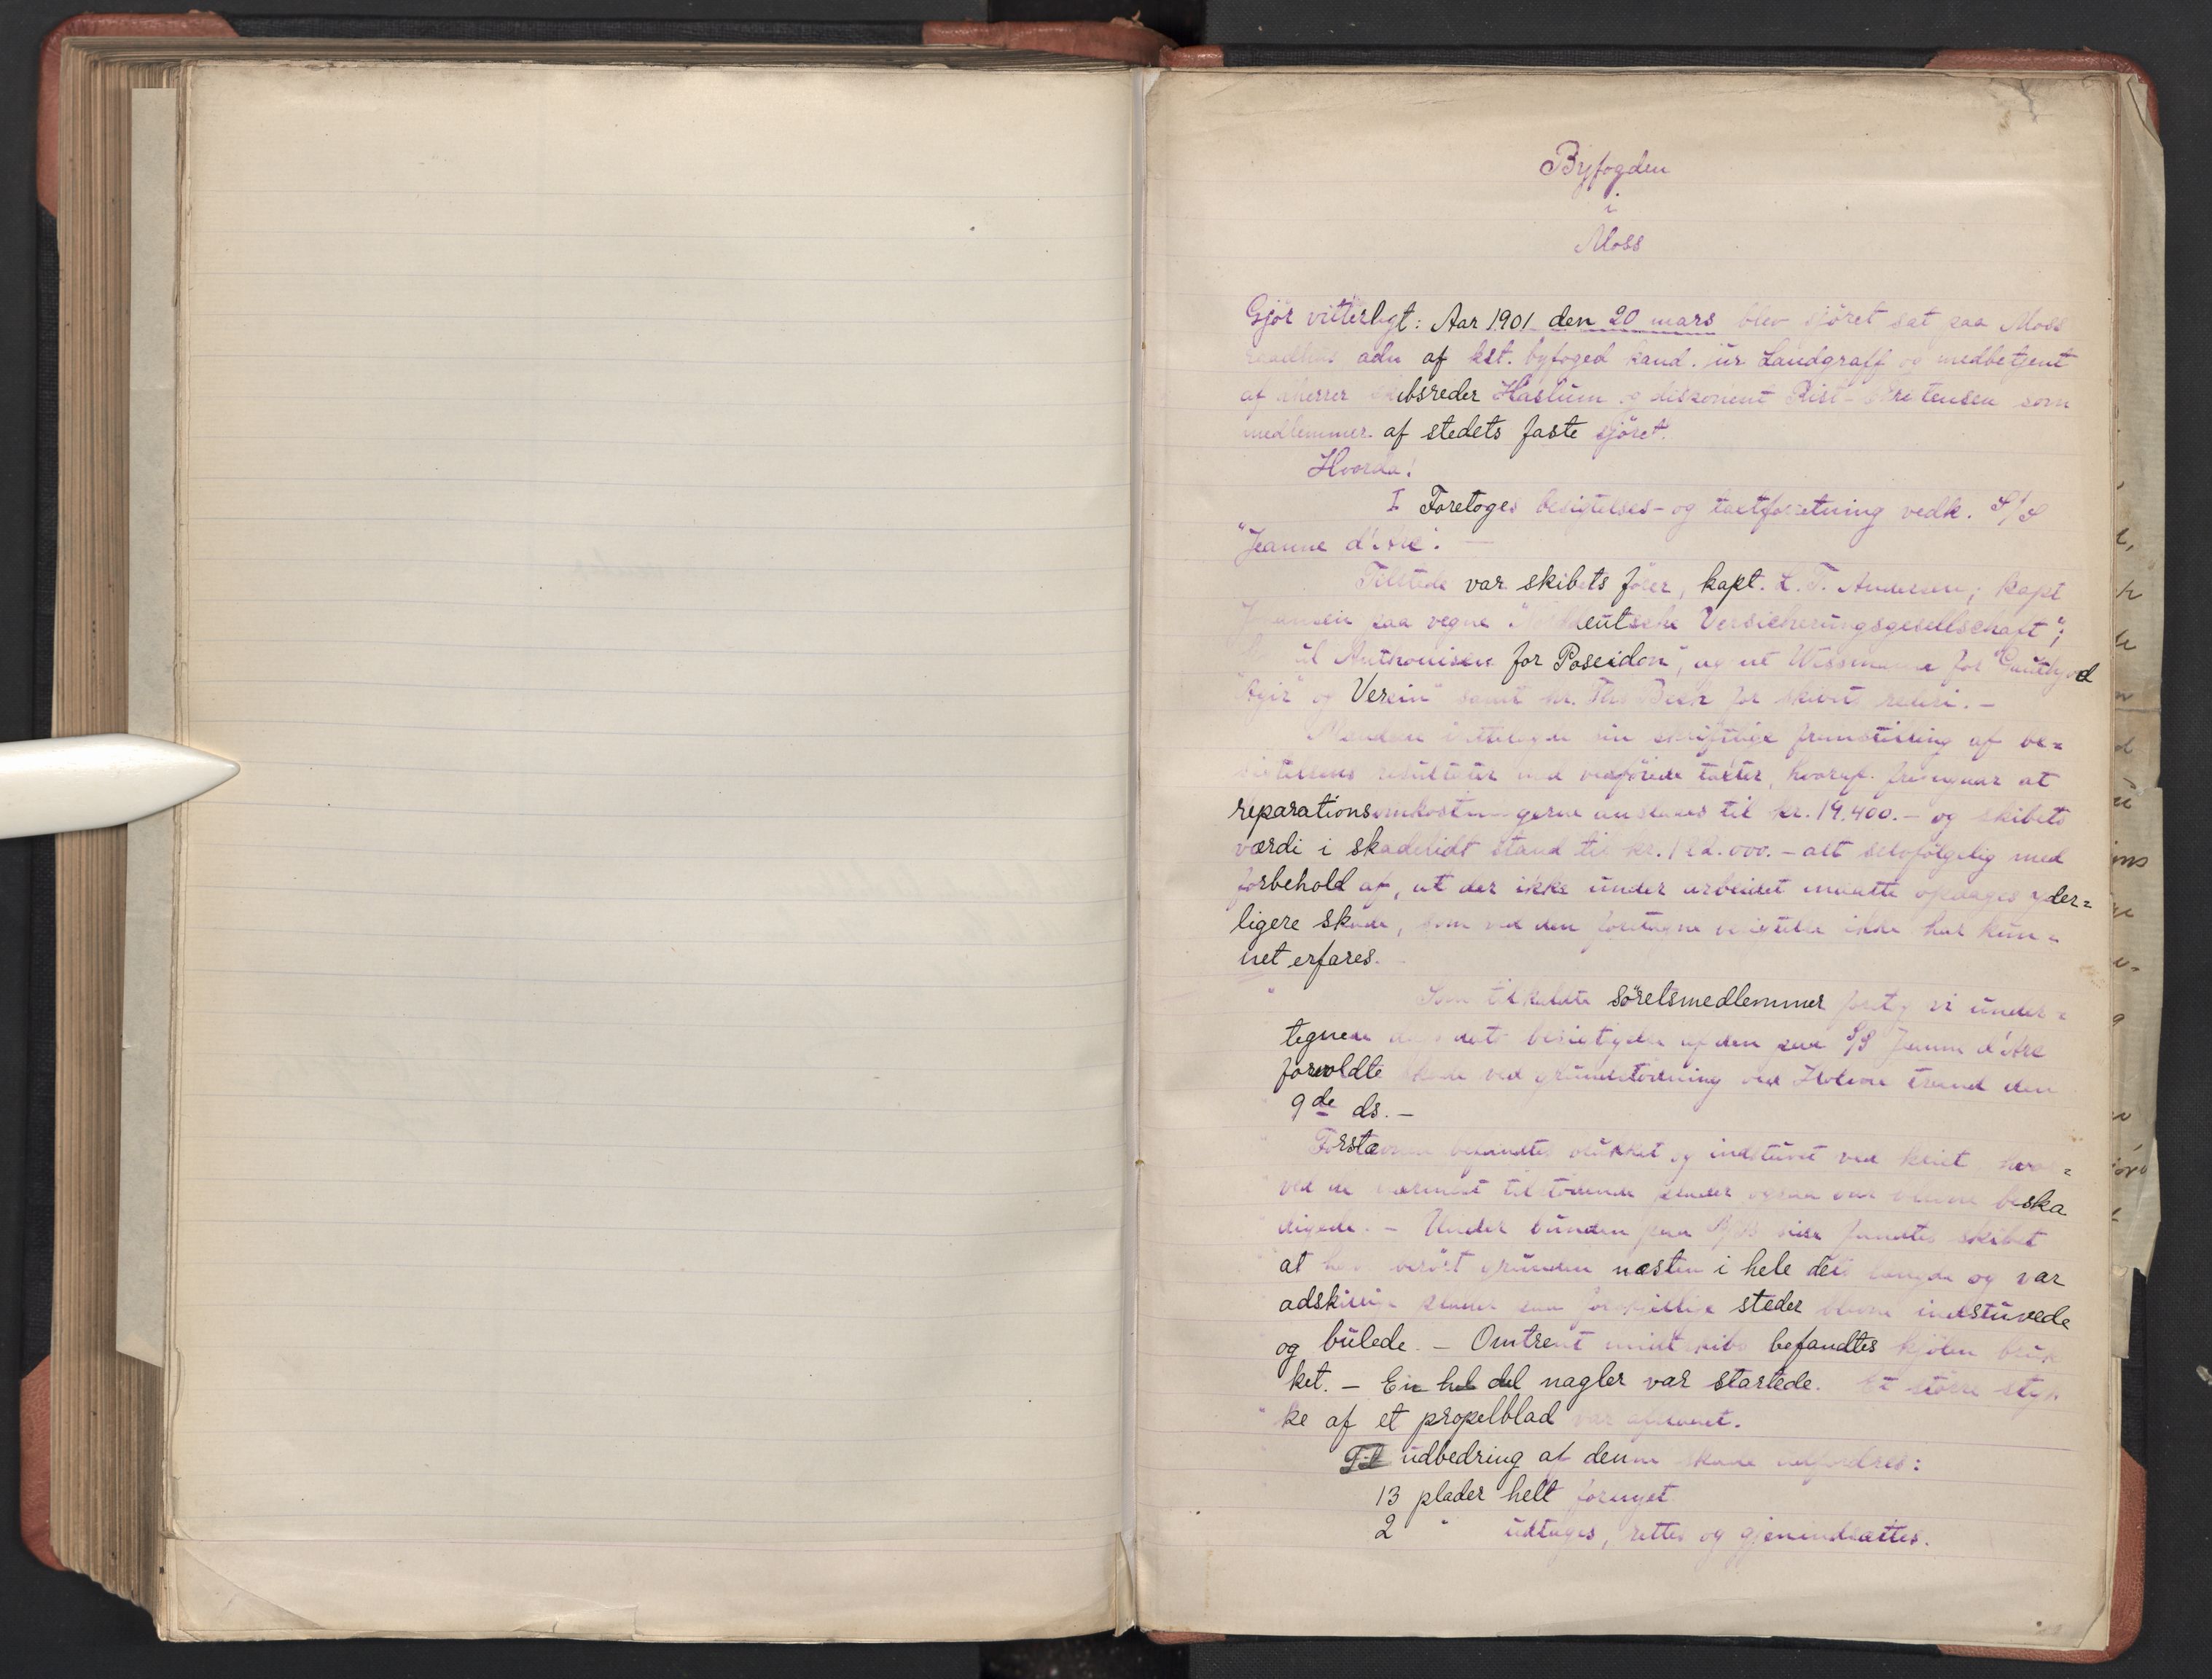 Byfogden
i
Moss
Gjör vitterligt: Aar 1901 den 20 mars blev sjöret sat paa Moss
raadhus adm af kst. byfoged kand. jur Landgraff og medbetjent
af dherrer skibsreder Haslum og diskonent Rist-Kristensen som
medlemmer af stedets faste sjöret.
Hvorda!
I Foretoges besigtelses- og taxtforretning vedk. S/S
"Jeanne d'Arc". —
Tilstede var skibets förer, kapt. L. T. Andersen; kapt
paa vegne "Norddeutsche Versicherungsgesellschaft";
Anthonisen for Poseidon", agent Wissmann for
"Ägir" og Verein" samt hr. Ths Bech for skibets rederi. —
sin skriftlige fremstilling af be=
sigtelsens resultater med vedförede taxter, hvoraf fremgaar at
reparationsomkostningerne ansloges til kr. 19.400.— og skibets
værdi i skadelidt stand til kr. 122.000.— alt selvfölgelig med
forbehold af, at der ikke under arbeidet maatte opdages yder=
ligere skade, som ved den foretagne besigtelse ikke har kun=
net erfares.
" Som tilkaldte söretsmedlemmer foretog vi under=
tegnede dags dato besigtigelse af den paa S/S Jeanne d'Arc
forvoldte skade ved grundstödning ved strand den
9de ds. —
Forstævnen befandtes brukket og indstuvet ved hvor=
ved de nærmest tilstödende plader ogsaa var blevne beska
digede. — Under bunden paa side fandtes skibet
at have berört grunden næsten i hele dets længde og var
adskillige plader paa forskjellige steder blevne indstuvede
og bulede. — Omtrent midtskibs befandtes kjölen bruk
ket. — En hel del nagler var startede. Et större styk
" ke af et propelblad var afslaaet.
Til udbedring af denne skade udfordres:
13 plader helt fornyet
2 " udtages, rettes og gjenindsættes.